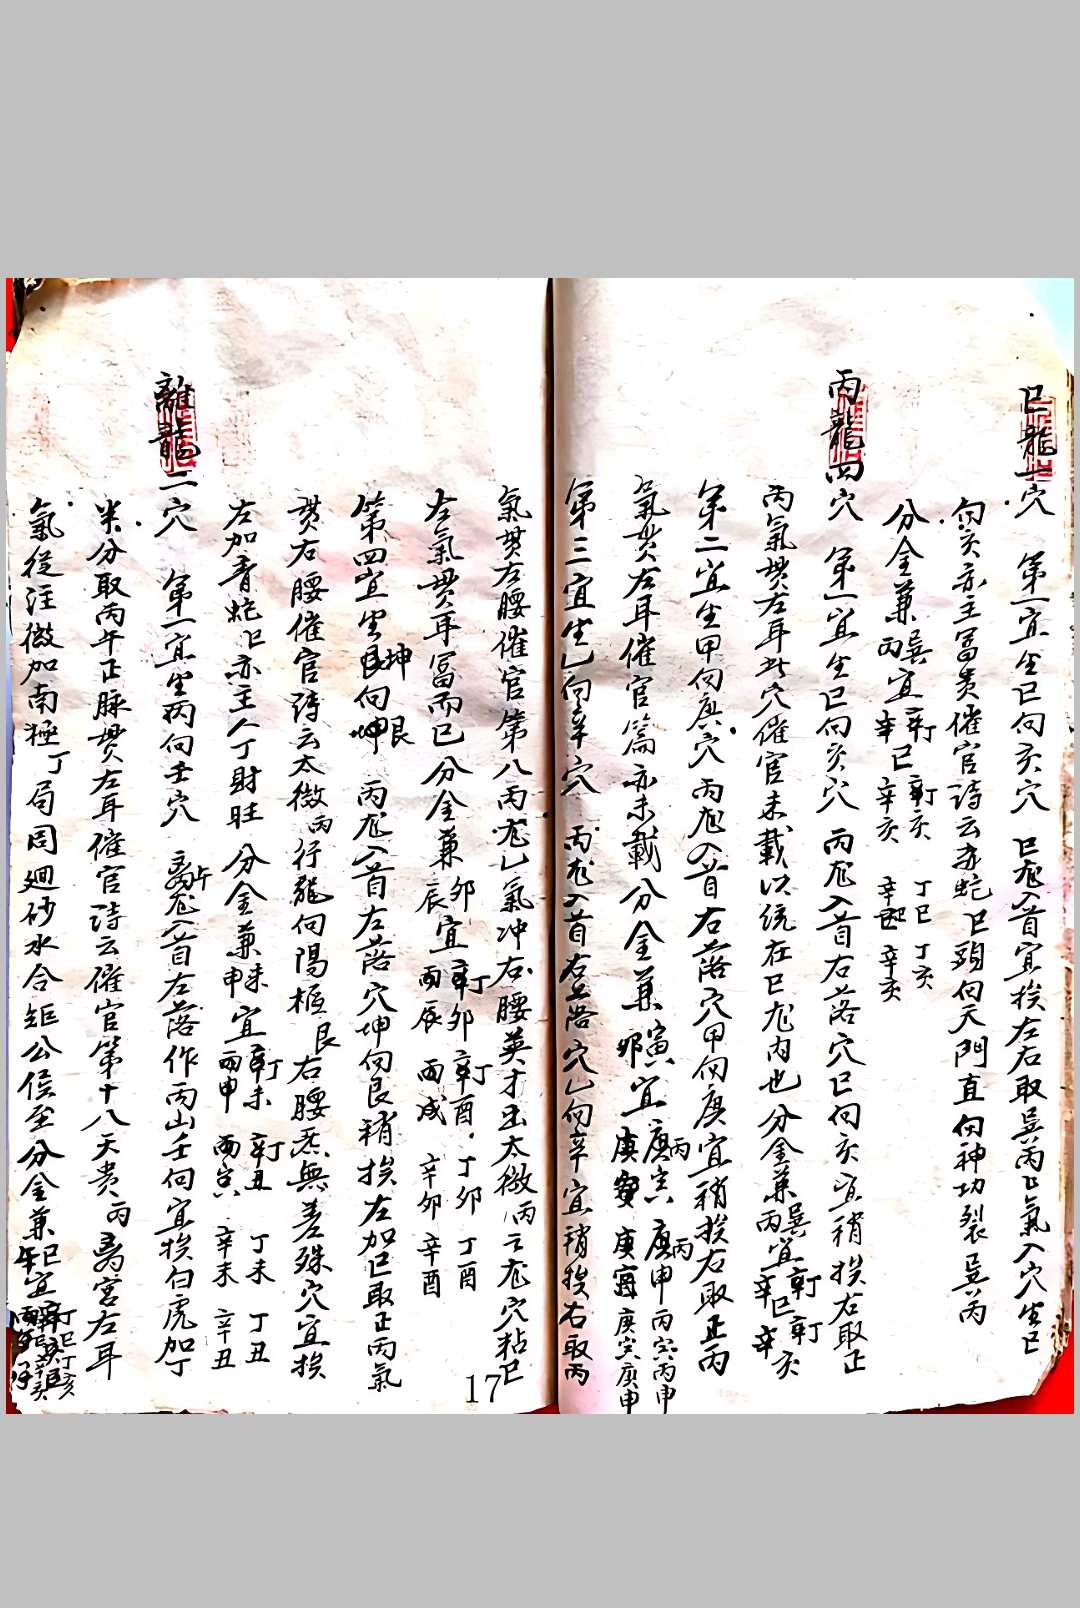 巳龍一穴 第一宜坐巳向亥穴 巳龙入首宜挨左右取巽丙巳氣入穴坐巳
向亥亦主富贵催官诗云赤蛇巳頭向天門直向神功裂巽丙
分金兼巽丙宜辛巳 辛亥 丁巳 丁亥 辛亥
丙龍四穴 第一宜坐巳向亥穴 丙龙入首右落穴巳向亥宜稍挨右取正
丙氣贯左耳此穴催官未載以统在巳龙内也分金兼巽丙宜辛巳辛亥
第二宜坐甲向庚穴 丙龙入首右落穴甲向庚宜稍挨右取正丙
氣贯左耳催官篇亦未載分金兼寅卯宜丙寅 丙申 丙寅丙申 庚寅庚申
第三宜坐乙向辛穴 丙龙入首右落穴乙向辛宜稍挨右取丙
氣贯左腰催官第八丙龙乙氣冲右腰英才出太微丙云龙穴粘巳
左氣贯耳冨而已分金兼卯辰宜丁卯 丁酉 丁卯 丁酉 丙辰 丙戌 辛卯 辛酉
第四宜坐坤向艮 丙龙入首左落穴坤向艮稍挨左加巳取正丙氣
贯右腰催官诗云太微丙行龍向陽樞艮右腰乘無差殊穴宜挨
左加青蛇巳亦主人丁財旺 分金兼未申宜丁未 丁丑 丁未 丁丑 丙申 丙寅 辛未 辛丑
離龍二穴 第一宜坐丙向壬穴 离午龙入首左落作丙山壬向宜挨白虎加丁
半分取丙午正脉贯左耳催官诗云催官第十八天贵丙离宫左耳
氣從注微加南極丁局周廻砂水合矩公侯至分金兼巳午宜
17